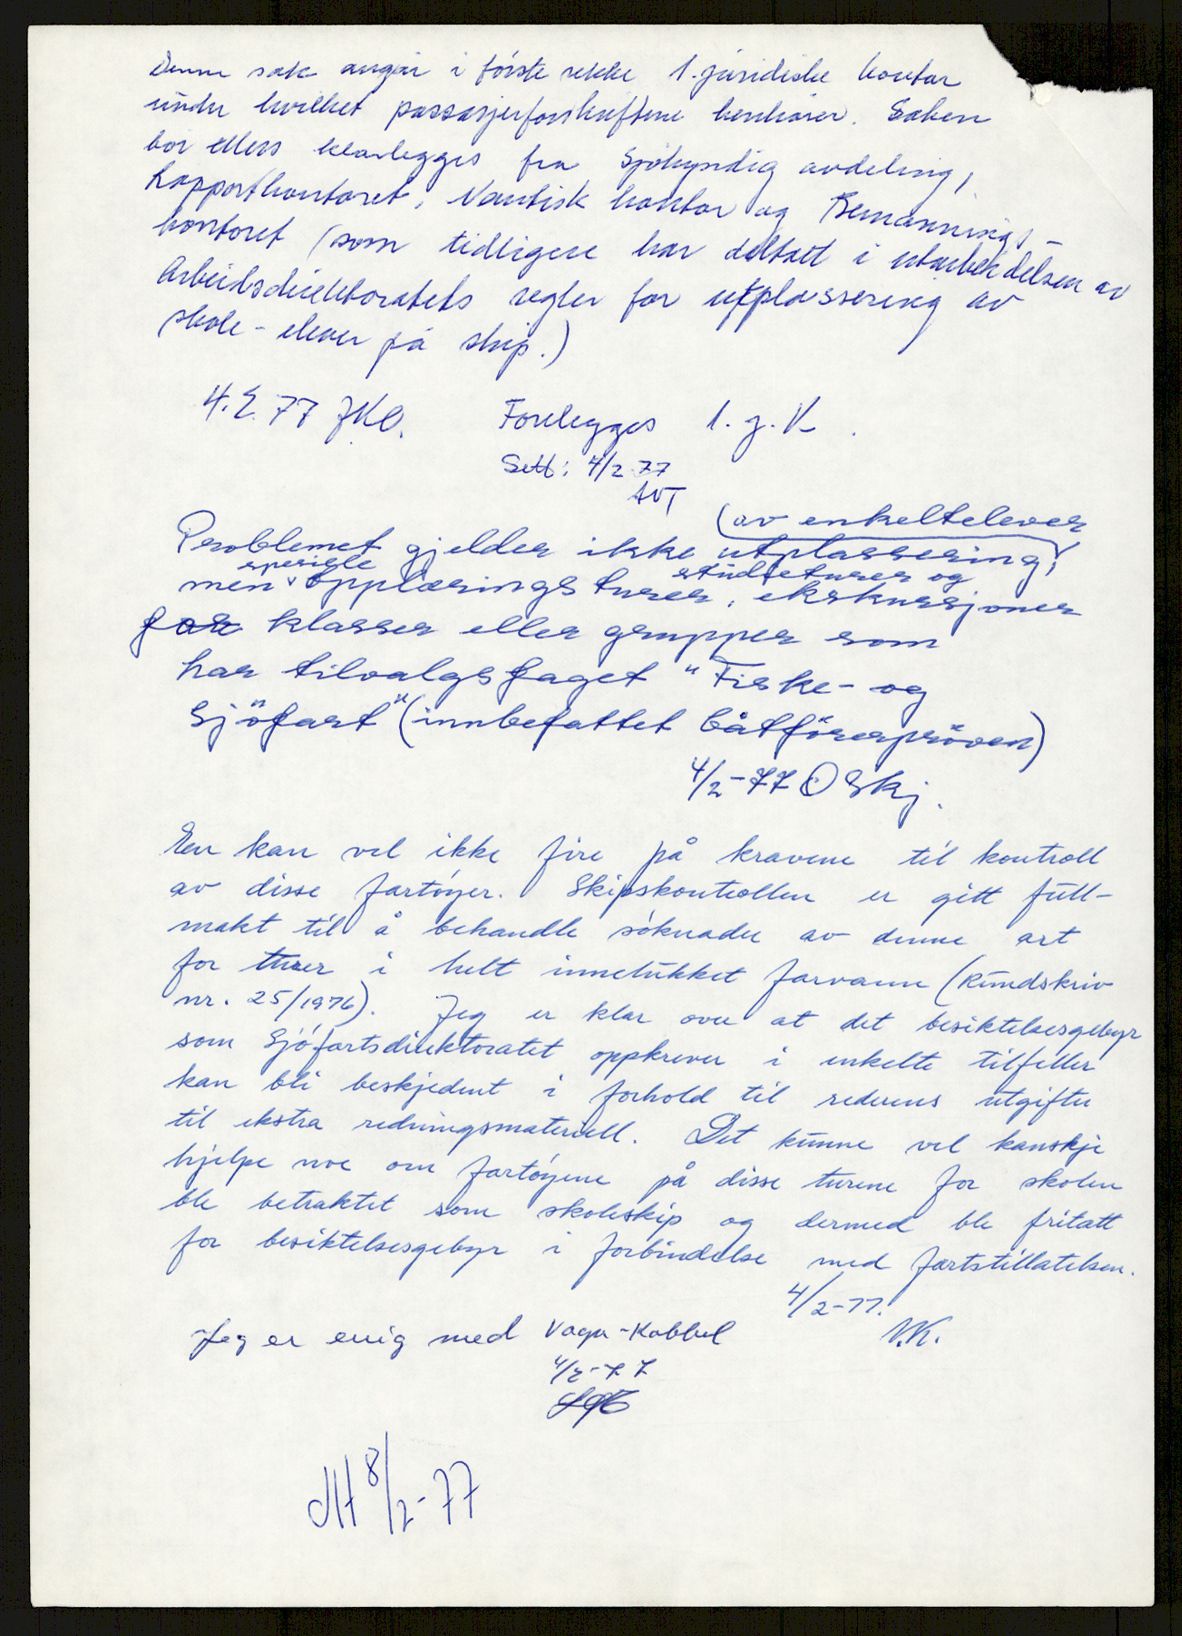 Denne sak angår i første rekke 1. juridiske kontor
under hvilket passasjerforskriftene henhører. Saken
bør ellers klarlegges fra Sjøkyndig avdeling,
Rapportkontoret, Nautisk kontor og Bemannings-
kontoret (som tidligere har deltatt i utarbeidelsen av
Arbeidsdirektoratets regler for utplassering av
skole-elever på skip.)
4.2.77 JKO. Forelegges 1. j. K.
Sett: 4/2 77
AVT
(av enkeltelever
Problemet gjelder ikke utplassering,
spesielle studieturer og
men opplæringsturer, ekskursjoner
for klasser eller grupper som
har tilvalgsfaget "Fiske- og
Sjöfart" (innbefattet båtförerpröven)
4/2-77 O Skj.
En kan vel ikke fire på kravene til kontroll
av disse fartøyer. Skipskontrollen er gitt full-
makt til å behandle søknader av denne art
for turer i helt innelukket farvann (Rundskriv
nr. 25/1976). Jeg er klar over at det besiktelsesgebyr
som Sjøfartsdirektoratet oppkrever i enkelte tilfeller
kan bli beskjedent i forhold til rederens utgifter
til ekstra redningsmateriell. Det kunne vel kanskje
hjelpe noe om fartøyene på disse turene for skolen
ble betraktet som skoleskip og dermed ble fritatt
for besiktelsesgebyr i forbindelse med fartstillatelsen.
4/2-77.
V.K.
Jeg er enig med Vagn-Kobbel
4/2-77
MH 8/2-77